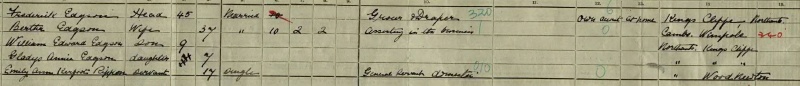 Frederick Eagson Head 45 Married 10 Grocer & Draper 320 Own acct at home Kings Cliffe, Northants
Bertha Eagson Wife 37 " 10 2 2 Assisting in the business Cambs. 360
William Edward Eagson Son 9 Northants, Kings Cliffe
Gladys Annie Eagson daughter 7 " "
Emily Annie Rippon Servant 17 Single General Servant Domestic 210 " Woodnewton